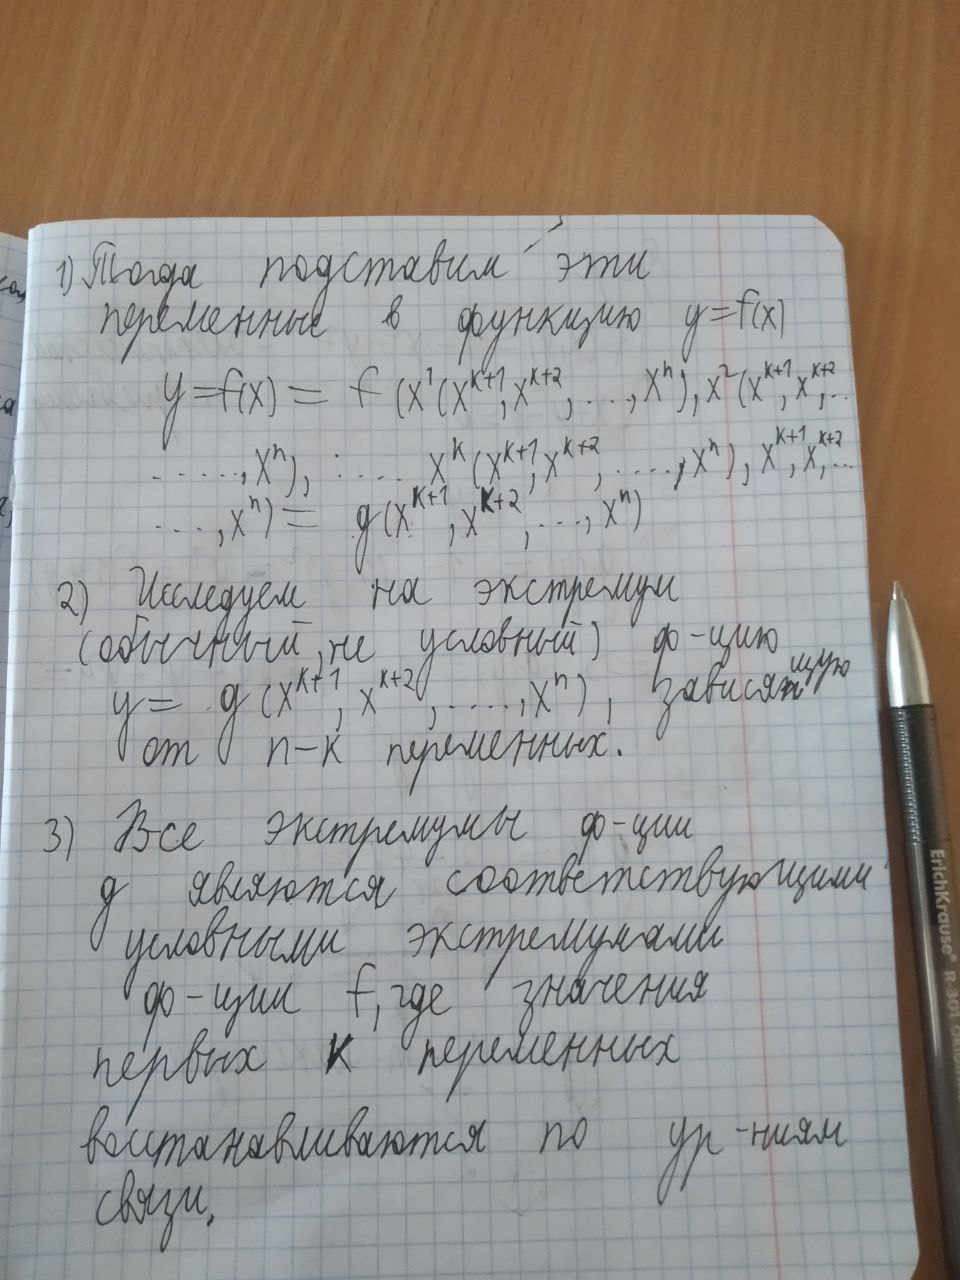 1) Тогда подставим эти
переменные в функцию y=f(x)
y=f(x) = f (x¹(xᵏ⁺¹, xᵏ⁺², ..., xⁿ), x²(xᵏ⁺¹, xᵏ⁺², ...
......, xⁿ), ...... xᵏ(xᵏ⁺¹, xᵏ⁺², ....., xⁿ), xᵏ⁺¹, xᵏ⁺², ...
...., xⁿ) = g(xᵏ⁺¹, xᵏ⁺², ..., xⁿ)
2) Исследуем на экстремум
(обычный, не условный) ф-цию
y= g (xᵏ⁺¹, xᵏ⁺², ....., xⁿ), зависящую
от n-k переменных.
3) Все экстремумы ф-ции
g являются соответствующими
условными экстремумами
ф-ции f, где значения
первых k переменных
восстанавливаются по ур-ниям
связи.
ErichKrause® R-301